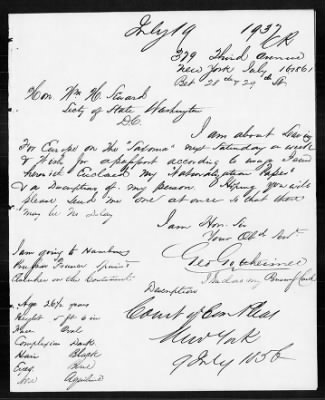 July 19 1937
CR
379 Third Avenue
New York July 16 1861
Bet 28th & 29th St.
Hon. Wm H. Seward
Secty of State Washington
D.C.
I am about Leaving
For Europe on the "Saxonia" next Saturday a week
& Wish for a passport according to I send
herewith Enclosed my Naturalization Papers
& a Description of my person. Hoping you will
please send me one at once so that there
may be no Delay
I am Hon. Sir
Your Obt Servt
Geo
I had as my Business Card
I am going to Hamburg
Prussia France Spain &
elsewhere on the Continent
Description
Age 26½ years
Height 5 ft 6 in
Face Oval
Complexion Dark
Hair Black
Eyes Blue
Nose Aquiline
Court of Com Pleas
New York
9 July 1856